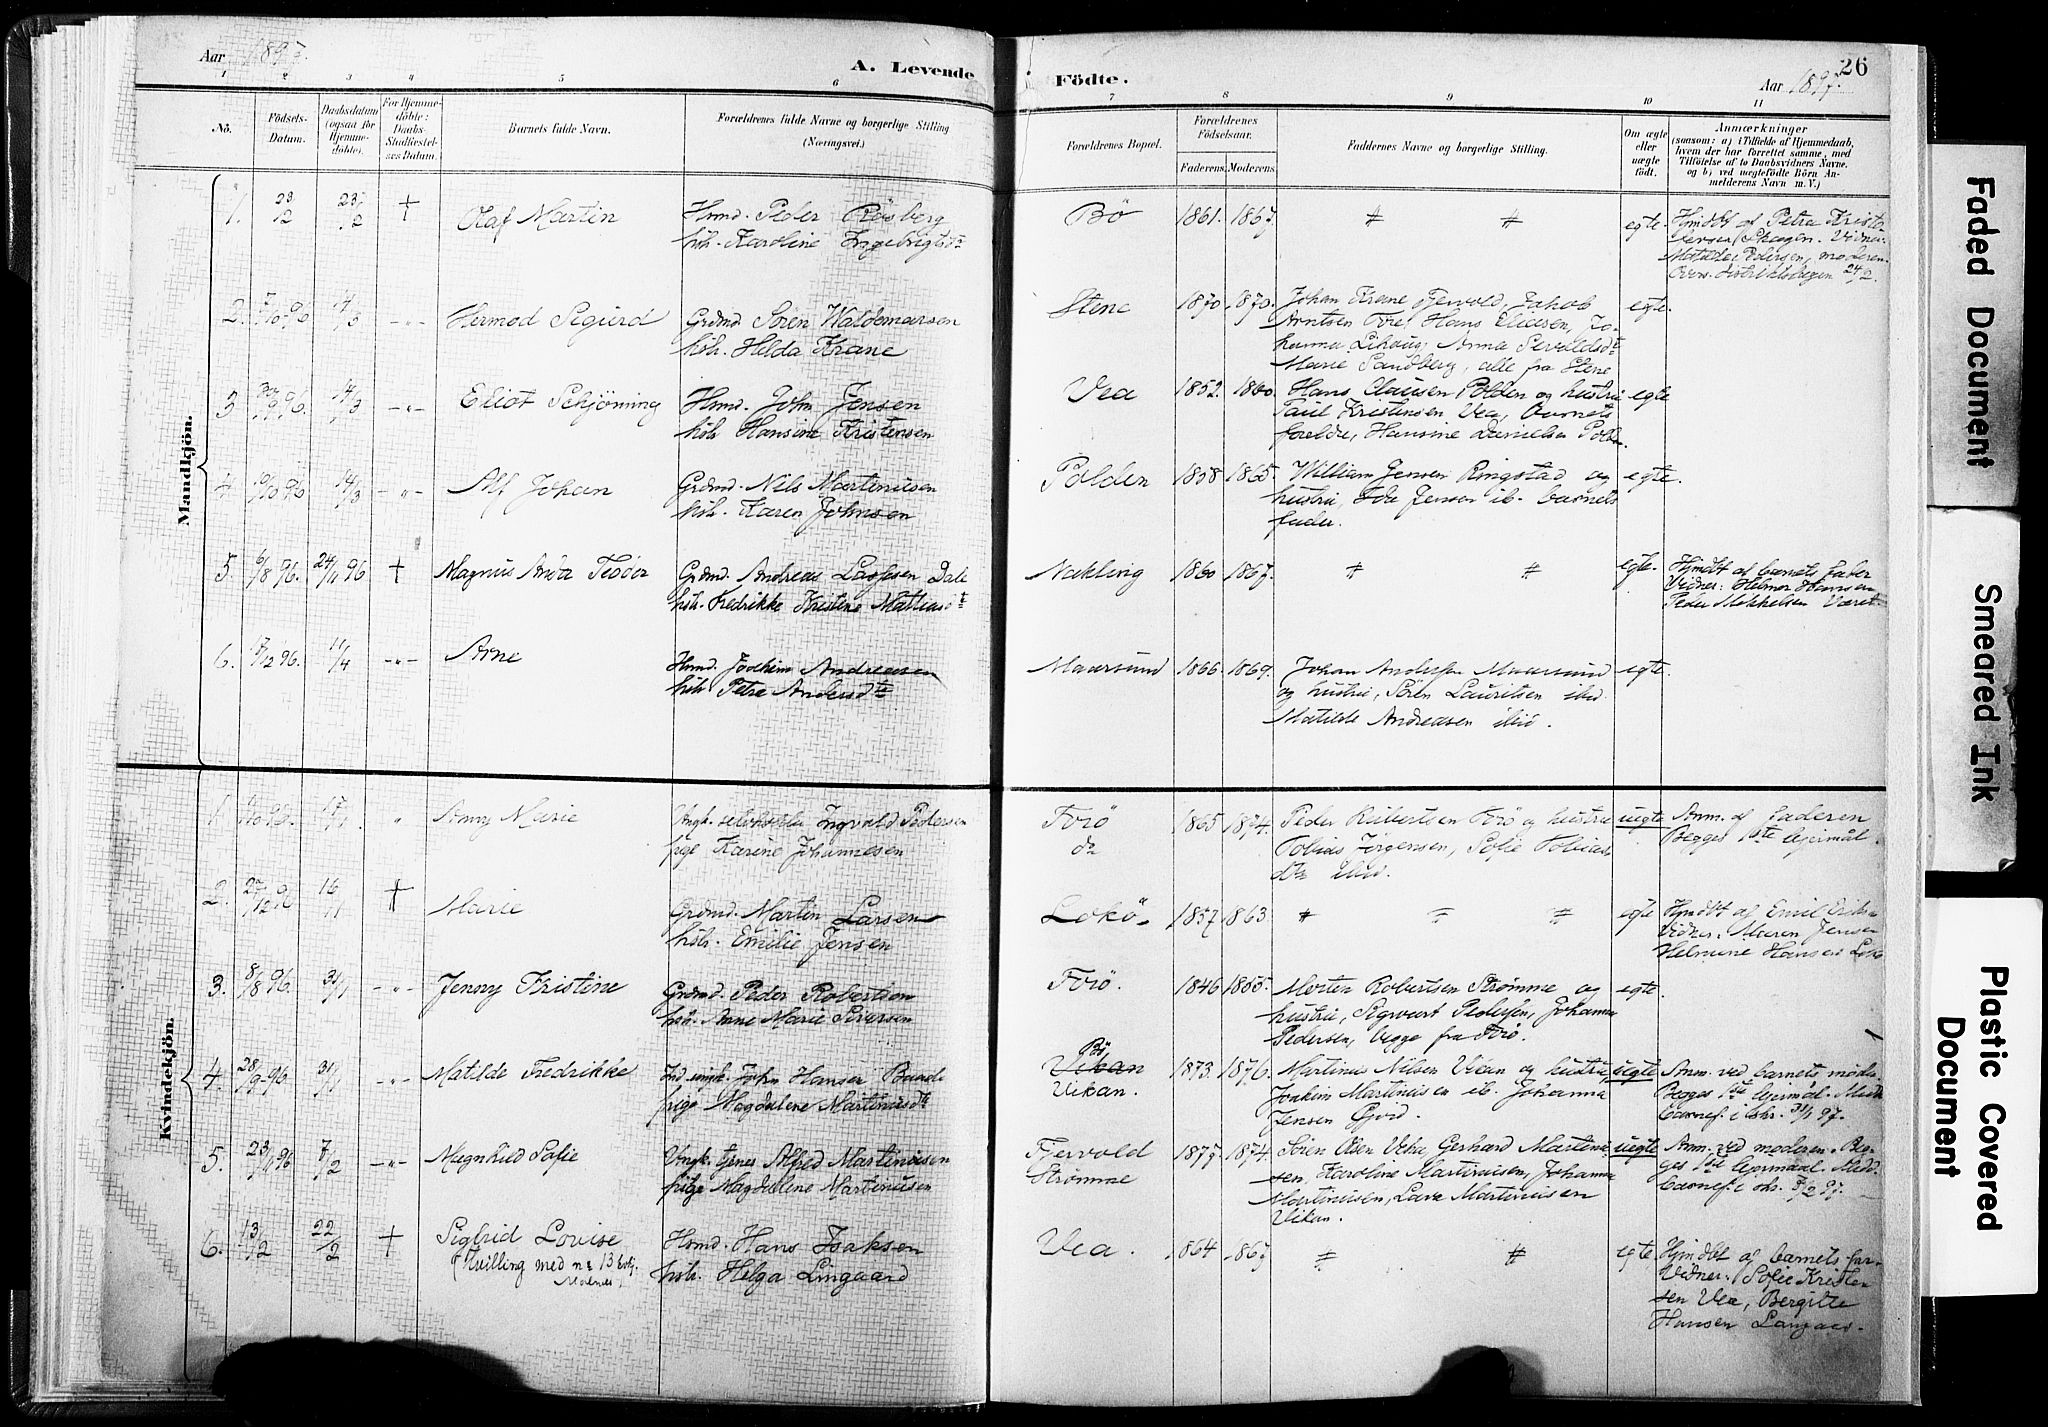 Aar 1897.
A. Levende
Födte.
Aar 1897.
26
1 2 3 4 5 6
7 8 9 10 11
No.
Födsels-
Datum.
Daabsdatum
(ogsaa for
Hjemme-
döbte).
For Hjemme-
döbte:
Daabs-
Stadfæstel-
ses Datum.
Barnets fulde Navn.
Forældrenes fulde Navne og borgerlige Stilling
(Næringsvei.)
Forældrenes Bopæl.
Forældrenes
Födselsaar.
Faderens. Moderens.
Faddernes Navne og borgerlige Stilling.
Om ægte
eller
uægte
født.
Anmærkninger
(saasom: a) i Tilfælde af Hjemmedaab,
hvem der har forrettet samme, med
Tilföielse af to Daabsvidners Navne,
og b) ved uægtefödte Börn An-
melderens Navn m. V.)
Mandkjön.
1. 23/2 23/2 † Olaf Martin
Hsmd. Peder Røsberg
hsh. Karoline Ingebrigtsdtr
Bö 1861. 1867.〃 〃 egte.
Hjmdbt af Petra Kristo-
fersen, Skagen. Vidner
Matilde Pedersen, moderen
24/2
2. 7/10 96 14/3 -〃- Hermod Sigurd
Grdmd. Sören Waldemarsen
hsh. Helda Krane
Stene 1870. 1870.
Johan Krane Fjervold, Jakob
Arntsen Forø, Hans Eliasen, Jo-
hanna Lihaug, Anna Sevaldsdtr
Marie Sandberg, alle fra Stene
egte.
3 96. 14/3 -〃- Eliot Schjönning
Hsmd. John Jensen
hsh Hansine Kristensen
Vea 1852. 1860.
Hans Clausen Polden og hustru
Paul Kristensen Vea, barnets
forældre, Hansine Danielsen Polden.
egte
4. 19/10 96 14/3 -〃- Alf Johan
Grdmd. Nils Martinusen
hsh. Karen Johnsen
Polden 1858 1865.
William Jensen Ringstad og
hustru, Ida Jensen ib. barnets
fader.
egte.
5. 6/8 96. 24/11 96 † Magnus Anda Teodor
Grdmd. Andreas Lassesen Dale
hsh. Fredrikke Kristine Mathiasdtr
Nakling 1860 1867. 〃 〃 egte.
Hjmdbt af barnets fader
Vidner: Helmer Hansen
Peder Mikkelsen Været
6. 17/12 96. 11/4 -〃- Arne
Hsmd. Joachim Andreasen
hsh. Petra Andersdtr
Maarsund 1866. 1869.
Johan Andersen Maarsund
og hustru, Sören Lauritsen ibid.
Matilde Andreasen ibid.
egte.
Kvindekjön.
1. 17/1 〃 Anny Marie
Ungk. Ingvald Pedersen
pige Karene Johannesen
Forö
do
1865 1874.
Peder Robertsen Forö og hustru
Tobias Jørgensen, Sofie Tobias-
dtr ibid.
uegte
Anm. af faderen
Begges 1ste leiermål.
2. 27/12 96 16/1 † Marie
Grdmd. Martin Larsen
hsh. Emilie Jensen
Lokö. 1857 1863 〃 〃 〃 egte
Hjmdbt af Emil Eriks.
Vidner. Maren Jensen
Helmine Hansen Lokö
3. 8/8 96. 31/1 -〃- Jenny Kristine
Grdmd. Peder Robertsen
hsh. Anne Marie Siversen
Forö. 1846 1855.
Morten Robertsen Strömme og
hustru, Sigvart Pedersen, Johanna
Pedersen, begge fra Forö.
egte.
4. 28/9 96 31/1 -〃- Matilde Fredrikke
Ind. ungk. John Hansen
pige Magdalene Martinusdtr
Bö
Vikan
Vikan.
1873. 1876.
Martinus Nilsen Vikan og hustru,
Joakim Martinusen ib. Johanna
Jensen Gjord.
uegte
Anm. ved barnets moder
Begges 1ste leiermål. Medd.
barnef. i skr. 31/1 97.
5. 23/11 96 7/2 -〃- Magnhild Sofie
Ungk. tjener Alfred Martinusen
pige Magdalene Martinusen
Fjervold
Strömme
1877. 1874.
Sören Olsen Veka, Gerhard Martinu-
sen, Karoline Martinusen, Johanna
Martinusen, Lava Martinusen
Vikan.
uegte
Anm. ved moderen. Beg-
ges 1ste leiermaal. Medd.
barnef. i skr. 8/2 97.
6. 13/2 22/2 † Sigfrid Lovise
(Tvilling med no 13
Hsmd. Hans Isaksen
hsh. Helga Lingaard
Vea. 1864 1867 〃 〃 egte
Hjmdbt af barnets far.
Vidner: Sofie Kristen-
sen Vea, Bergitte
Hansen
Faded Document
Smeared Ink
Plastic Covered
Document